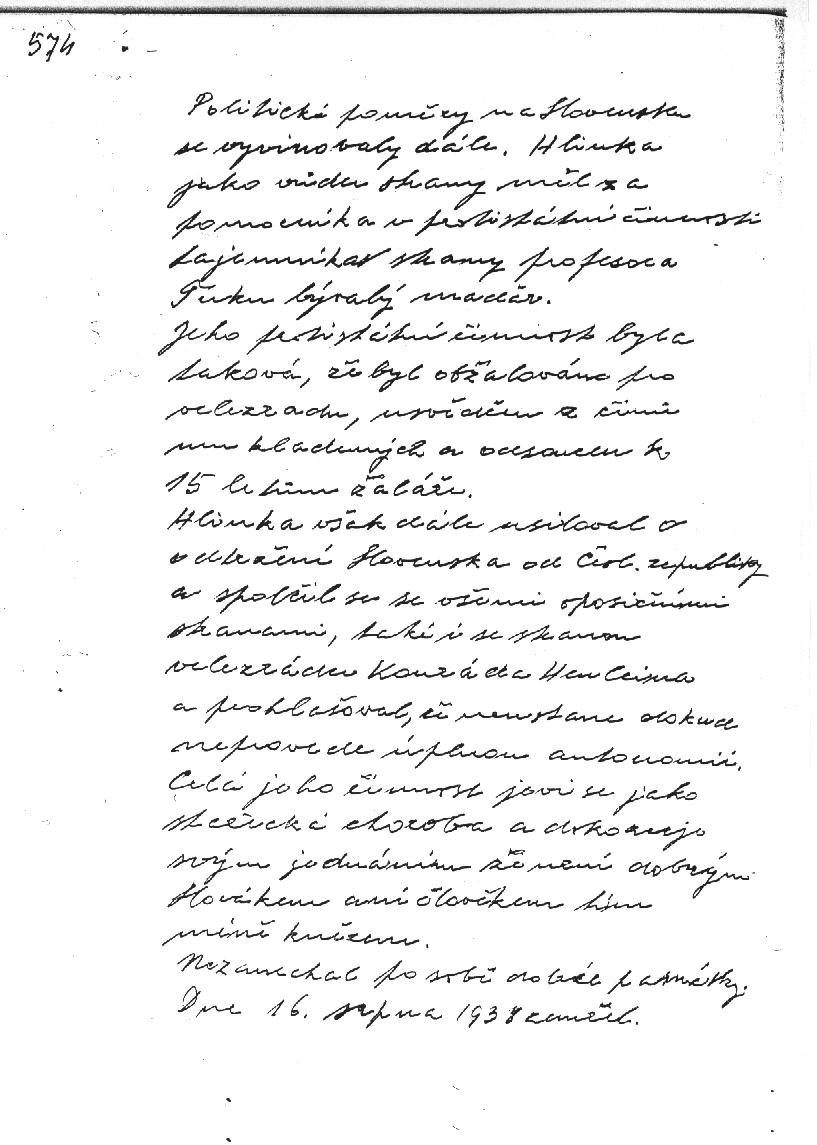 574
Politické poměry na Slovensku
se vyvinovaly dále. Hlinka
jako vůdce strany měl za
pomocníka v protistátní činnosti
tajemníka strany profesora
Tuku bývalý maďar.
Jeho protistátní činnost byla
taková, že byl obžalován pro
velezradu, usvědčen z činů
mu kladených a odsouzen k
15 letům žaláře.
Hlinka však dále usiloval o
odtržení Slovenska od Česl. republiky
a spolčil se se všemi oposičními
stranami, také i se stranou
velezrádce Konráda Henleina
a prohlašoval, že neustane dokud
neprovede úplnou autonomii.
Celá jeho činnost jeví se jako
stařecká choroba a dokazuje
svým jednáním že není dobrým
Slovákem ani člověkem tím
méně knězem.
Nezanechal po sobě dobré památky.
Dne 16. srpna 1938 zemřel.